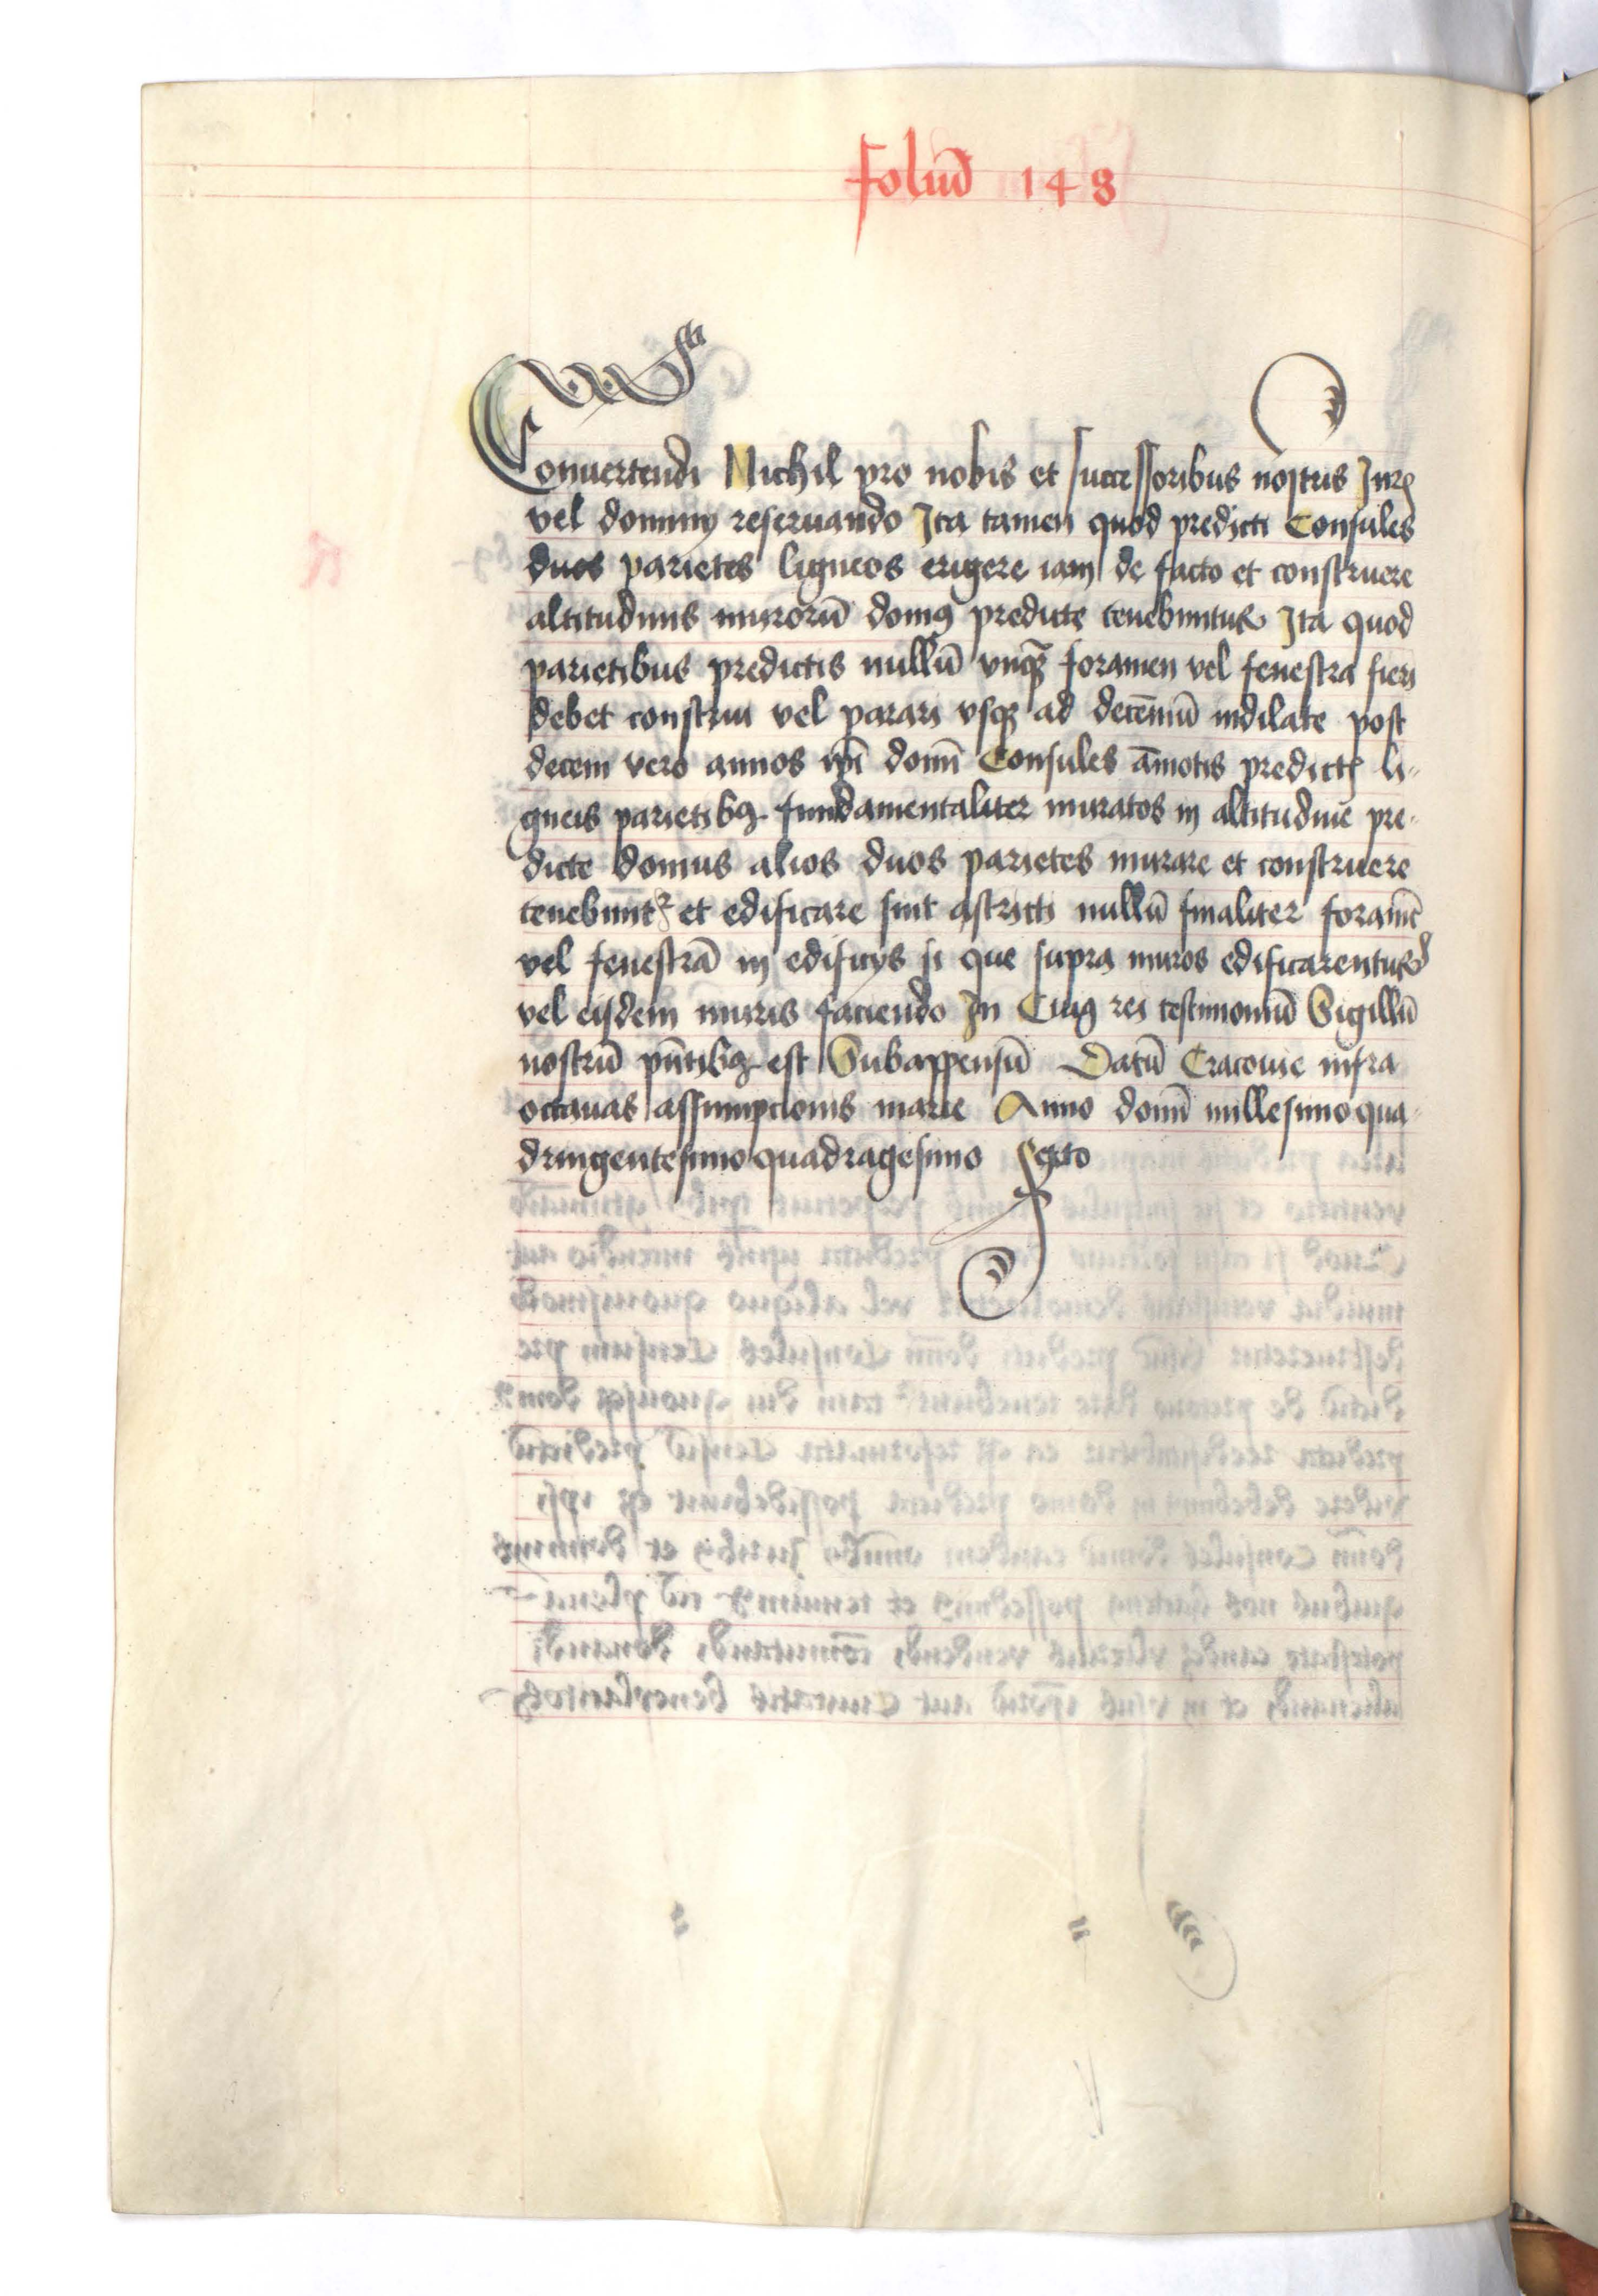 foliū 148
Conuertendi Nichil pro nobis et successoribus nostris Jur
vel dominy reseruando Ita tamen quod predicti Consules
duos parietes ligneos erigere iam de facto et construere
altitudinis murorū domꝰ predicte tenebuntur Ita quod
parietibus predictis nullū vnqᷓ foramen vel fenestra fieri
debet construi vel parari vsqꝫ ad decēniū indilate post
decem vero annos ip̄i domī Consules āmotis predictꝭ li-
gneis parietibꝫ fundamentaliter muratos in altitudinē pre-
dicte domus alios duos parietes murare et construere
tenebunt᷑ et edificare sint astricti nullū finaliter foramē
vel fenestrā in edificys si que supra muros edificarentur
vel eisdem muris faciendo In Cuiꝰ rei testimoniū Sigillū
nostrū pn̄tibꝫ est Subappensū Datū Cracouie infra
octauas assumpcionis marie Anno domī millesimo qua-
dringentesimo quadragesimo Sexto